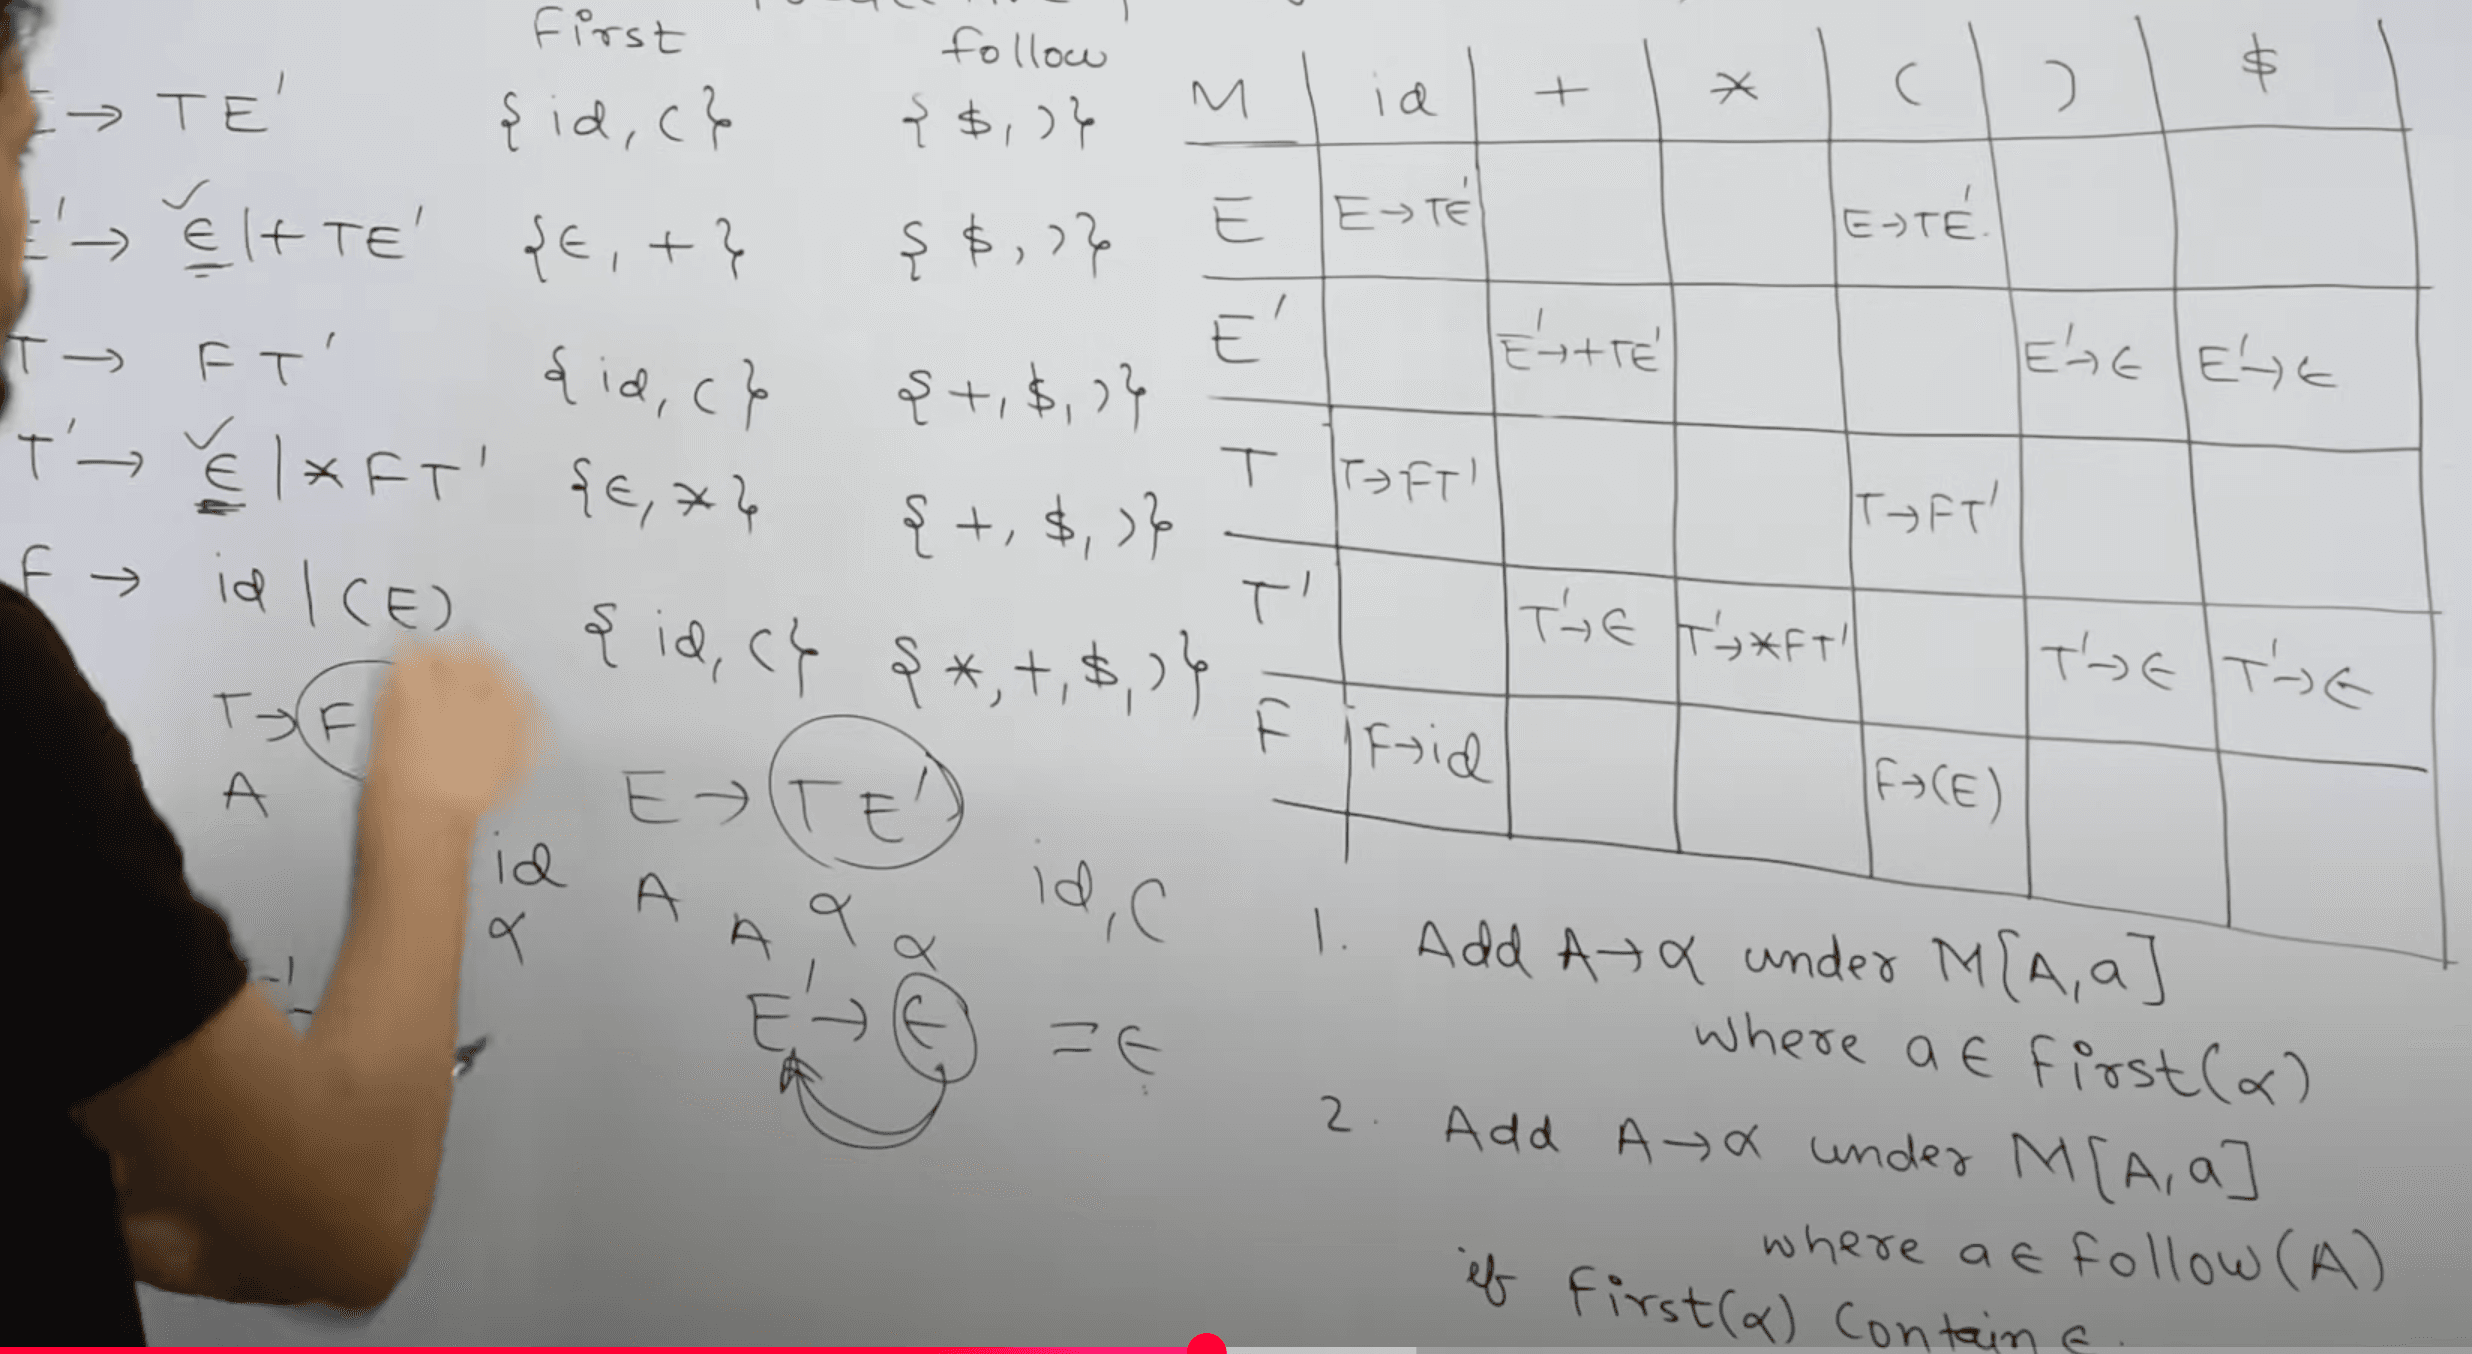 First follow
E → TE' {id, (} {$, )}
E' → ϵ | + TE' {ϵ, +} {$, )}
T → FT' {id, (} {+, $, )}
T' → ϵ | * FT' {ϵ, *} {+, $, )}
F → id | (E) {id, (} {*, +, $, )}
T → F
A
id
α
E → TE'
A α id, (
A α
E' → ϵ = ϵ
M id + * ( ) $
E E → TE' E → TE'
E' E' → + TE' E' → ϵ E' → ϵ
T T → FT' T → FT'
T' T' → ϵ T' → * FT' T' → ϵ T' → ϵ
F F → id F → (E)
1. Add A → α under M[A, a]
where a ∈ First(α)
2. Add A → α under M[A, a]
where a ∈ follow(A)
if First(α) contain ϵ.